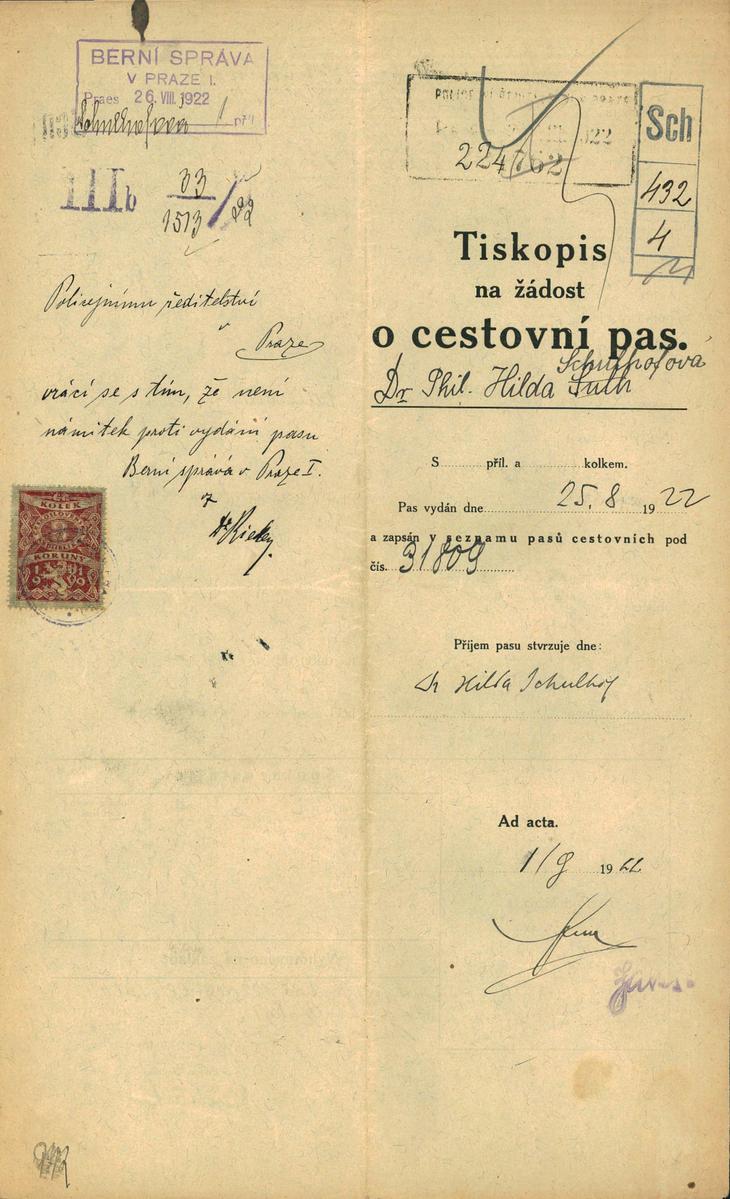 BERNÍ SPRÁVA
V PRAZE I.
Praes 26. VIII. 1922
příl.
IIIb 33/1513/22
Policejnímu ředitelství
v
Praze
vrácí se s tím, že není
námitek proti vydání pasu
Berní správa v Praze I.
KOLEK
KORUNY
224762
Sch
432
4
Tiskopis
na žádost
o cestovní pas.
Schulhofová
Dr Phil. Hilda
S příl. a kolkem.
Pas vydán dne 25. 8 1922
a zapsán v seznamu pasů cestovních pod
čís. 31809
Příjem pasu stvrzuje dne:
Dr Hilda Schulhof
Ad acta.
1/9 1922